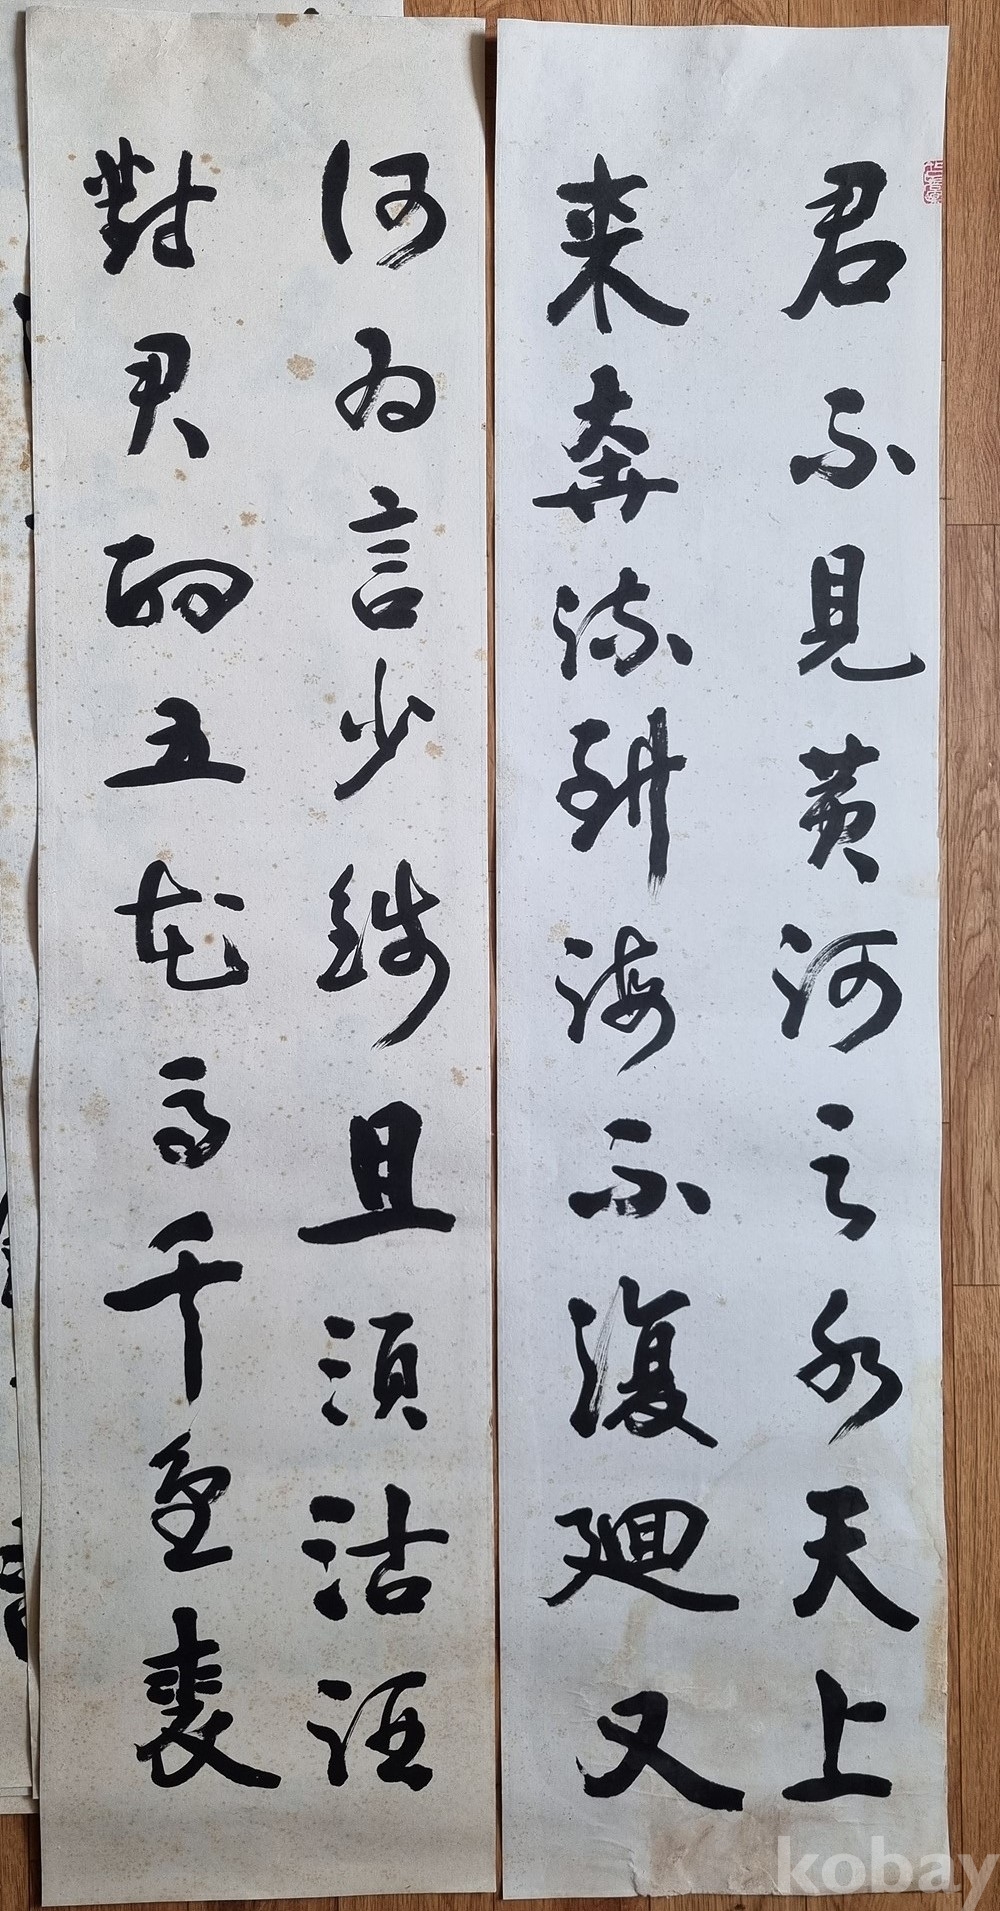 君不見黄河之水天上
来奔流到海不復廻又
何為言少錢且須沽酒
對君酌五花馬千金裘
kobay